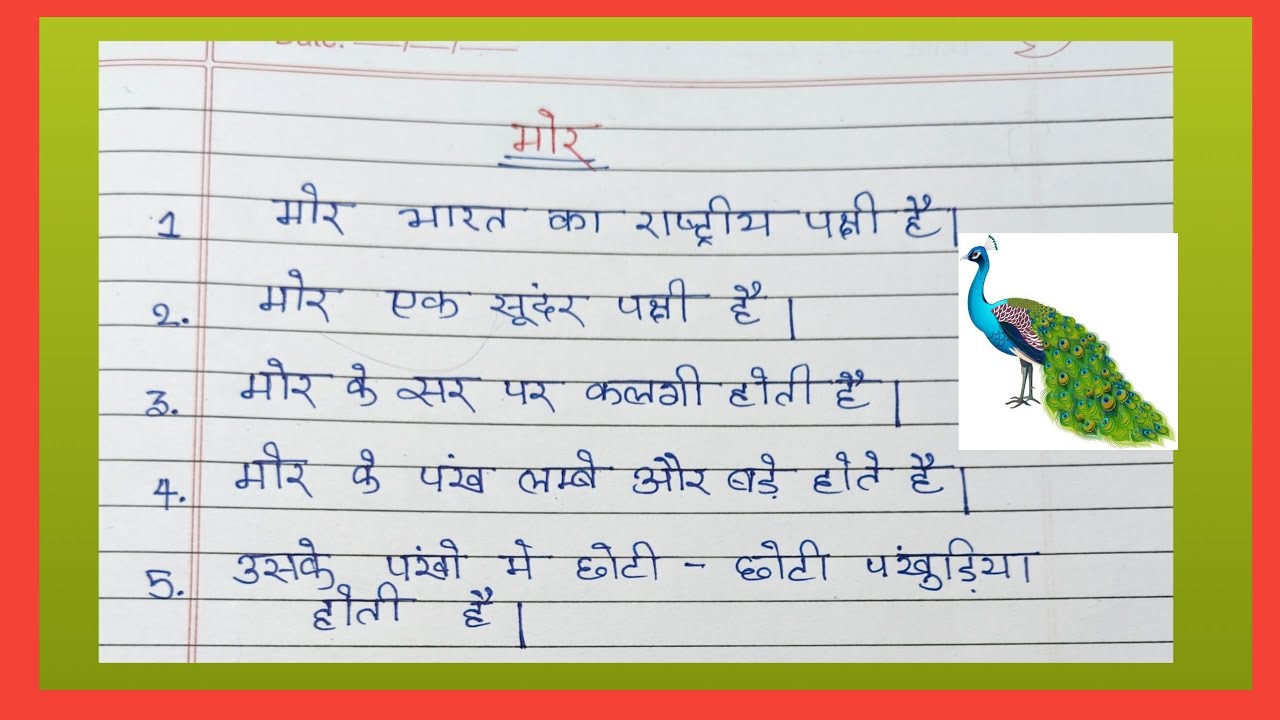 Date: __/__/__
मोर
1 मोर भारत का राष्ट्रीय पक्षी है।
2. मोर एक सूंदर पक्षी है।
3. मोर के सर पर कलगी होती है।
4. मोर के पंख लम्बे और बड़े होते है।
5. उसके पंखो मे छोटी - छोटी पंखुड़िया
होती है।